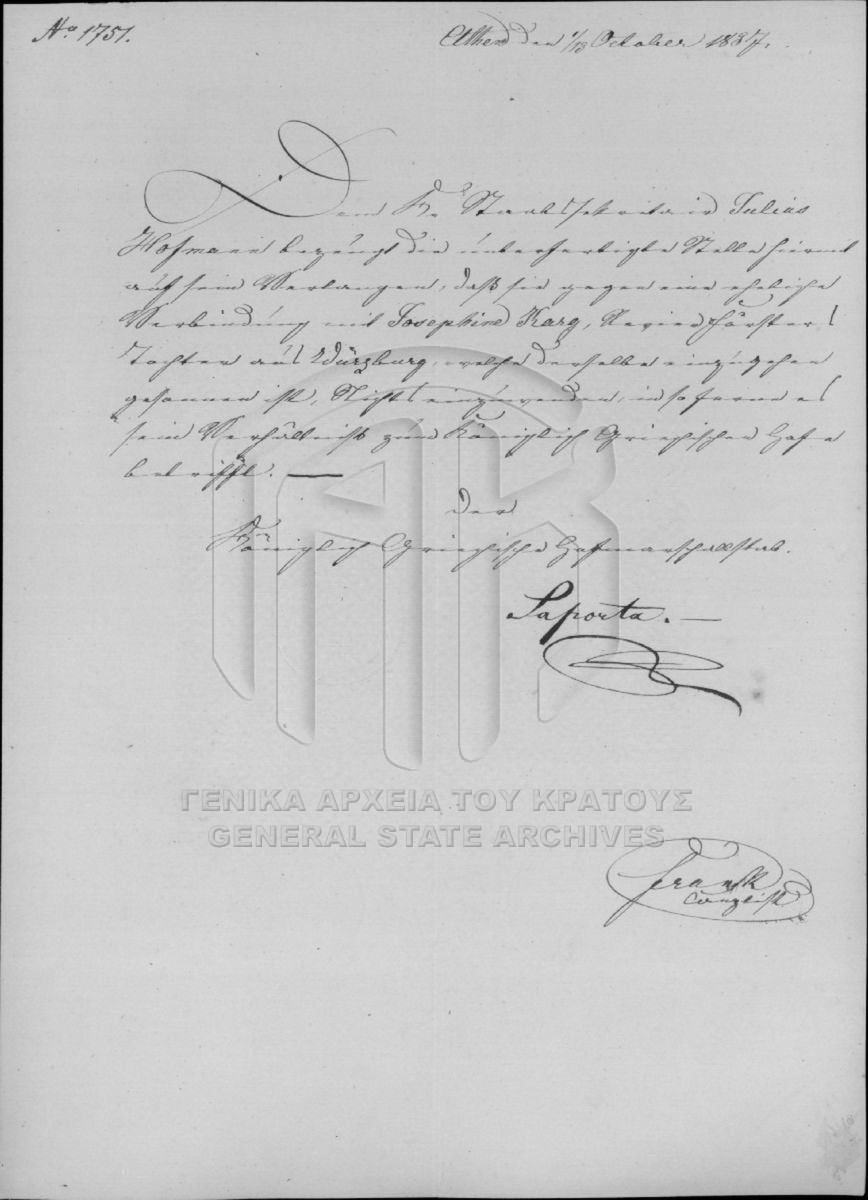 No 1751.
Athen den 1/13 October 1837.
Dem K. Staabssekretair Julius
Hofmann bezeugt die unterfertigte Stelle hiemit
auf sein Verlangen, daß sie gegen eine eheliche
Verbindung mit Josephine Karg, Revierförsters
Tochter aus Würzburg, welche derselbe einzugehen
gesonnen ist, Nichts einzuwenden, insoferne es
sein Verhältniß zum Königlich Griechischen Hofe
betrifft. —
Der
Königlich Griechische Hofmarschallstab.
Saporta. —
ΓΕΝΙΚΑ ΑΡΧΕΙΑ ΤΟΥ ΚΡΑΤΟΥΣ
GENERAL STATE ARCHIVES
Frank